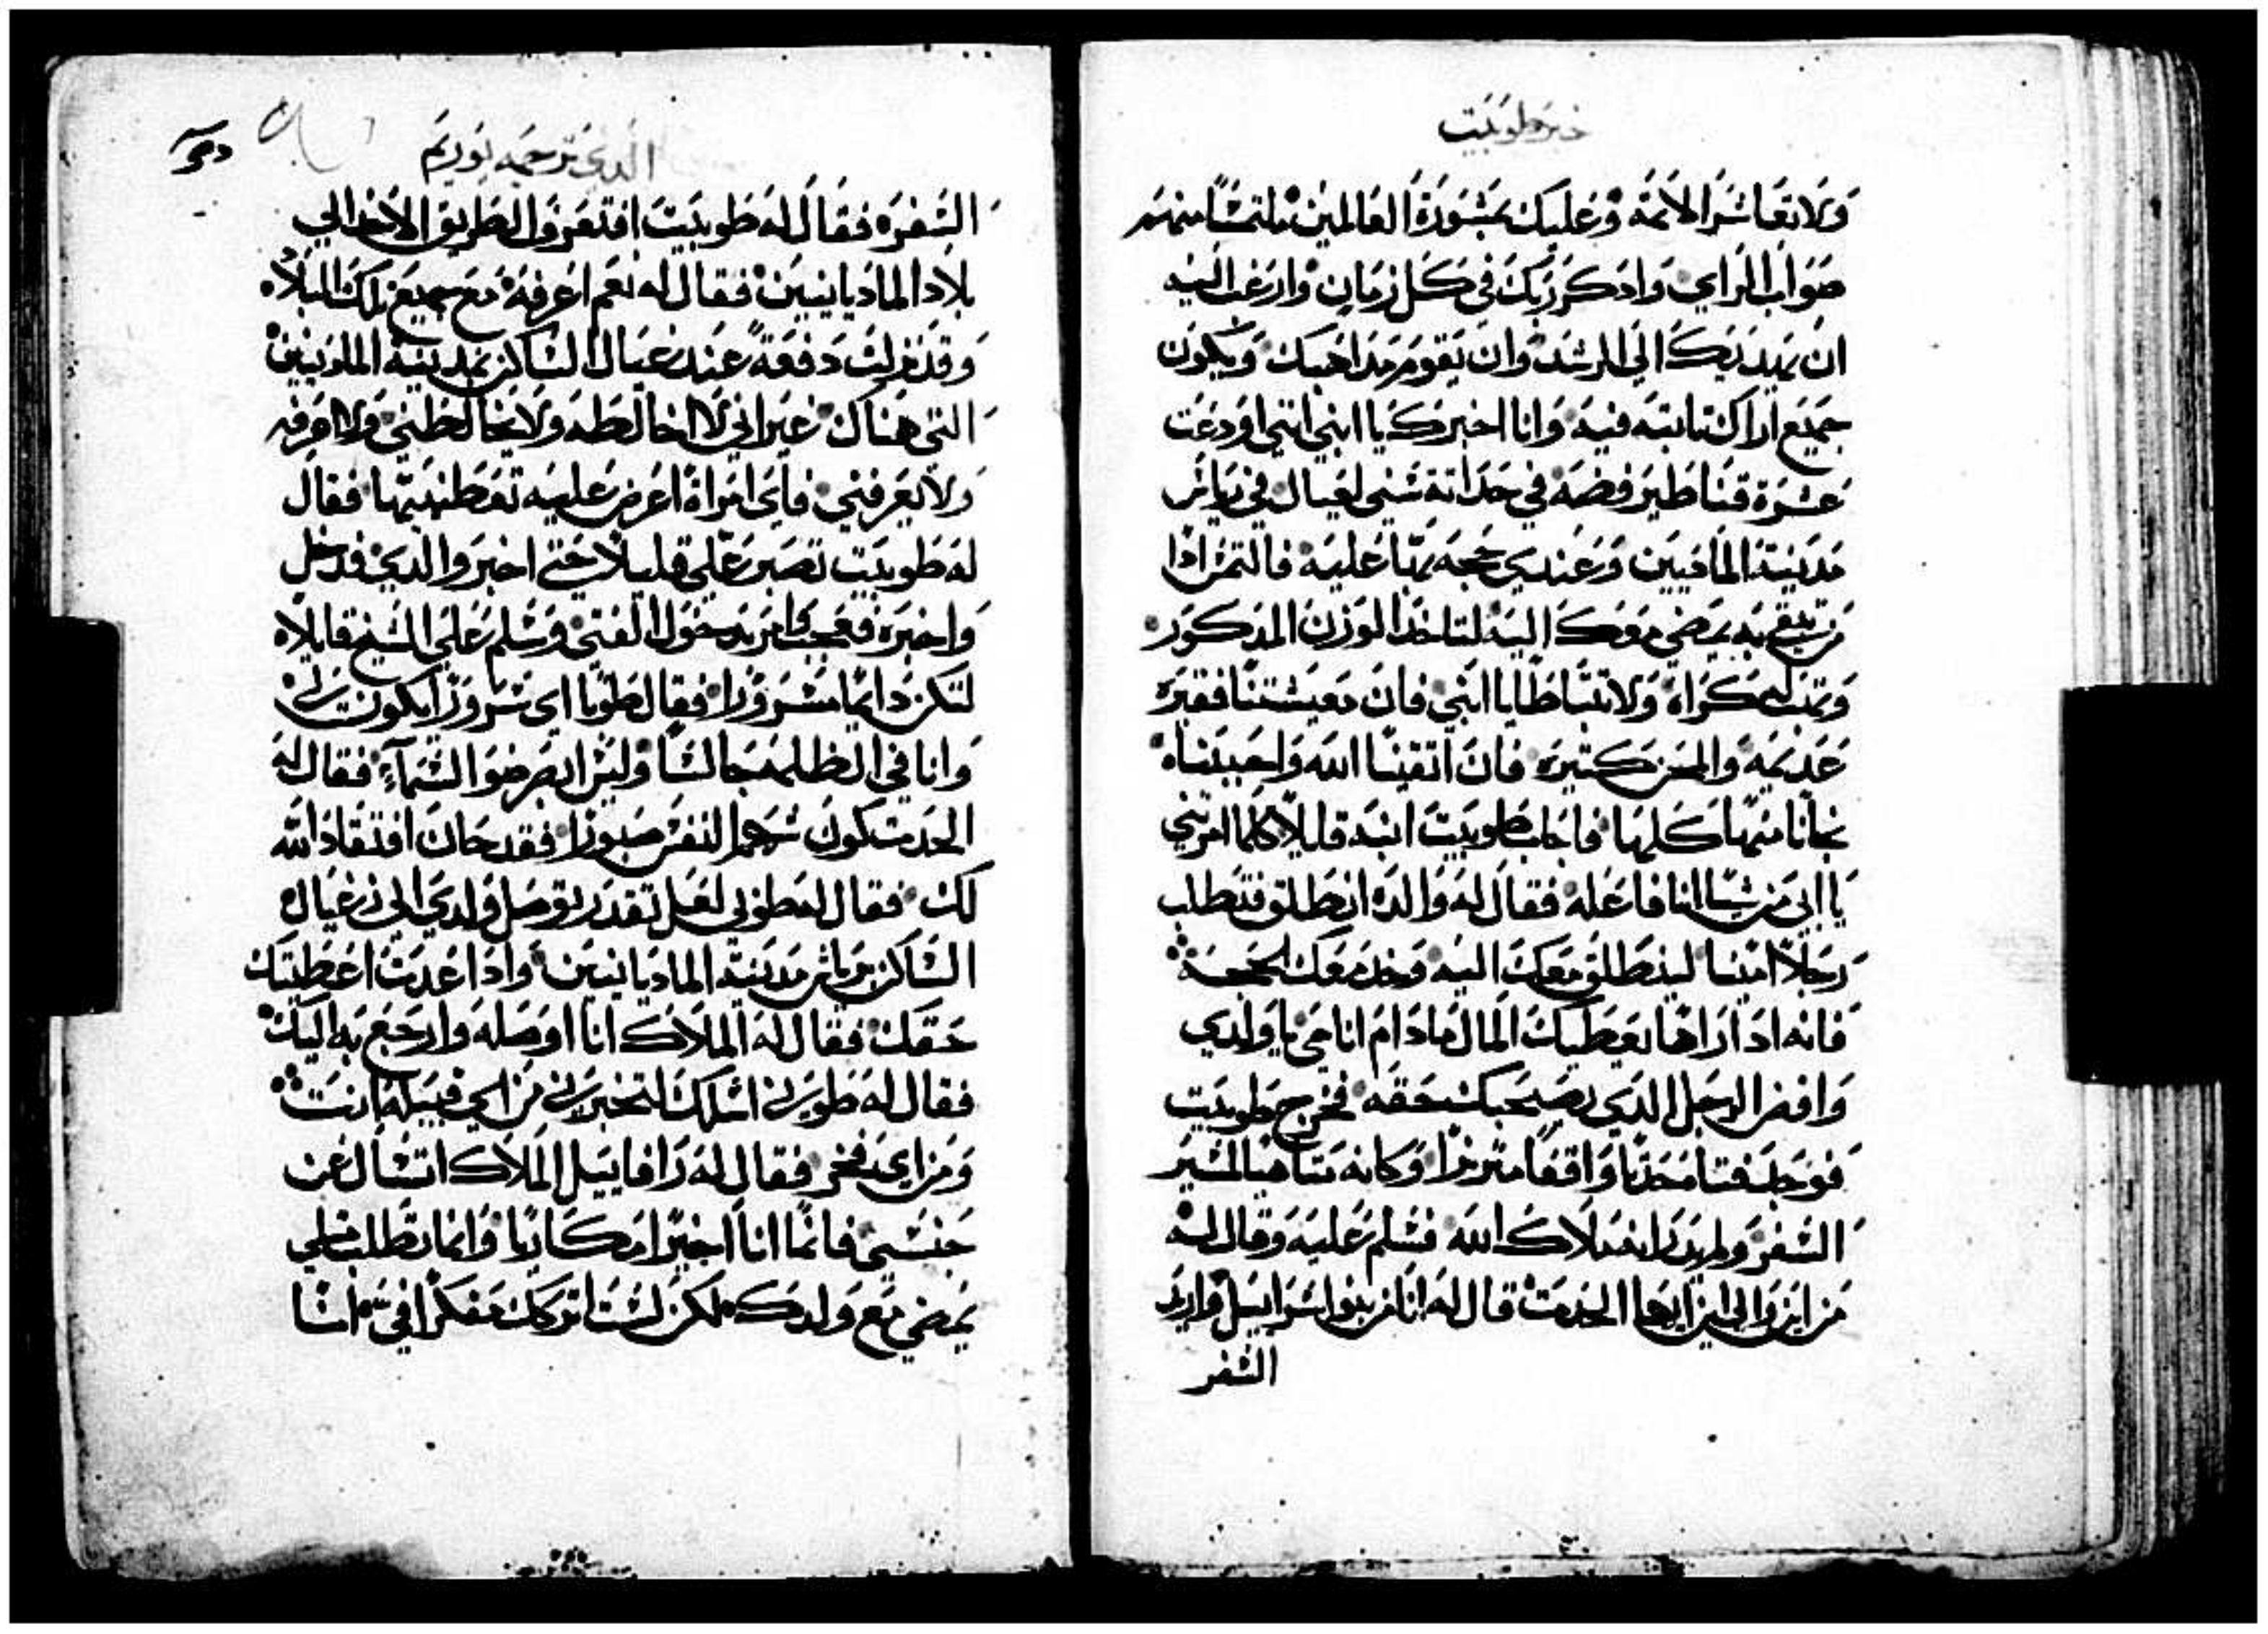 خبر طوبيت
ولا تعاشر الاثمه وعليك بمشورة العالمين ملتمسًا منهم
صواب الراي وادكر ربك في كل زمان وارغب اليه
ان يهديك الي الرشد وان يقوم مداهبك ويكون
جميع اراك تابته فيه وانا اخبرك يا ابني انني اودعت
عشرة قناطير فضه في حداثة سني لغبال في راس
مدينة الماديين وعندي حجه بها عليه فالتمس اذا
من تثق به يمضي معك اليه لتاخد الوزن المدكور
وتهب له كراه ولا تتباطا يا ابني فان معيشتنا فقيره
عديمه والمحن كتيره فان اتقينا الله واحببناه
نجانا منها كلها فاجاب طوبيت ابنه قايلًا كلما امرتني
يا ابي من شيا انا فاعله فقال له والده انطلق فتطلب
رجلًا امينًا لينطلق معك اليه وخد معك الحجه
فانه ادا راها يعطيك المال مادام انا حي يا ولدي
وافض الرجل الدي يصحبك حقه فخرج طوبيت
فوجد فتا محدتا واقفًا متزرًا وكانه متاهبًا لمسير
السفر ولم يدرا انه ملاك الله فسلم عليه وقال له
من اين والي اين ايها الحدت قال له انا من بنوا اسراييل واريد
السفر
الدي ترجمه يوريم
السفره فقال له طوبيت افتعرف الطريق الاخد الي
بلاد الماديانيين فقال له نعم اعرفه مع جميع تلك البلاد
وقد نزلت دفعةً عند غبال الساكن بمدينة الماديين
التي هناك غير اني لا اخالطه ولا يخالطني ولا اعرفه
ولا يعرفني فاي امراة اعرض عليه تعطنيها فقال
له طوبيت تصبر علي قليلًا حتي اخبر والدي فدخل
واخبره فعجب وامر بدخول الفتي وسلم علي الشيخ قايلًا
لتكن دايمًا مسرورًا فقال طوبيا اي سرورًا يكون لي
وانا في الظلمه جالسًا وليس ابصر ضو السماء فقال له
الحدت كون شهم النفس صبورًا فقد حان افتقاد الله
لك فقال له طوبي لعل تقدر توصل ولدي الي غبال
الساكن براس مدينة الماديانيين وادا عدت اعطيتك
حقك فقال له الملاك انا اوصله وارجع به اليك
فقال له طوبي اسلك لتخبرني من اي قبيله انت
ومن اي فخر فقال له رافاييل الملاك اتسال عن
جنسي فانما انا اجيرًا مكاريًا وانما تطلب متلي
يمضي مع ولدك لكن لست اتركك مفكرًا في انا